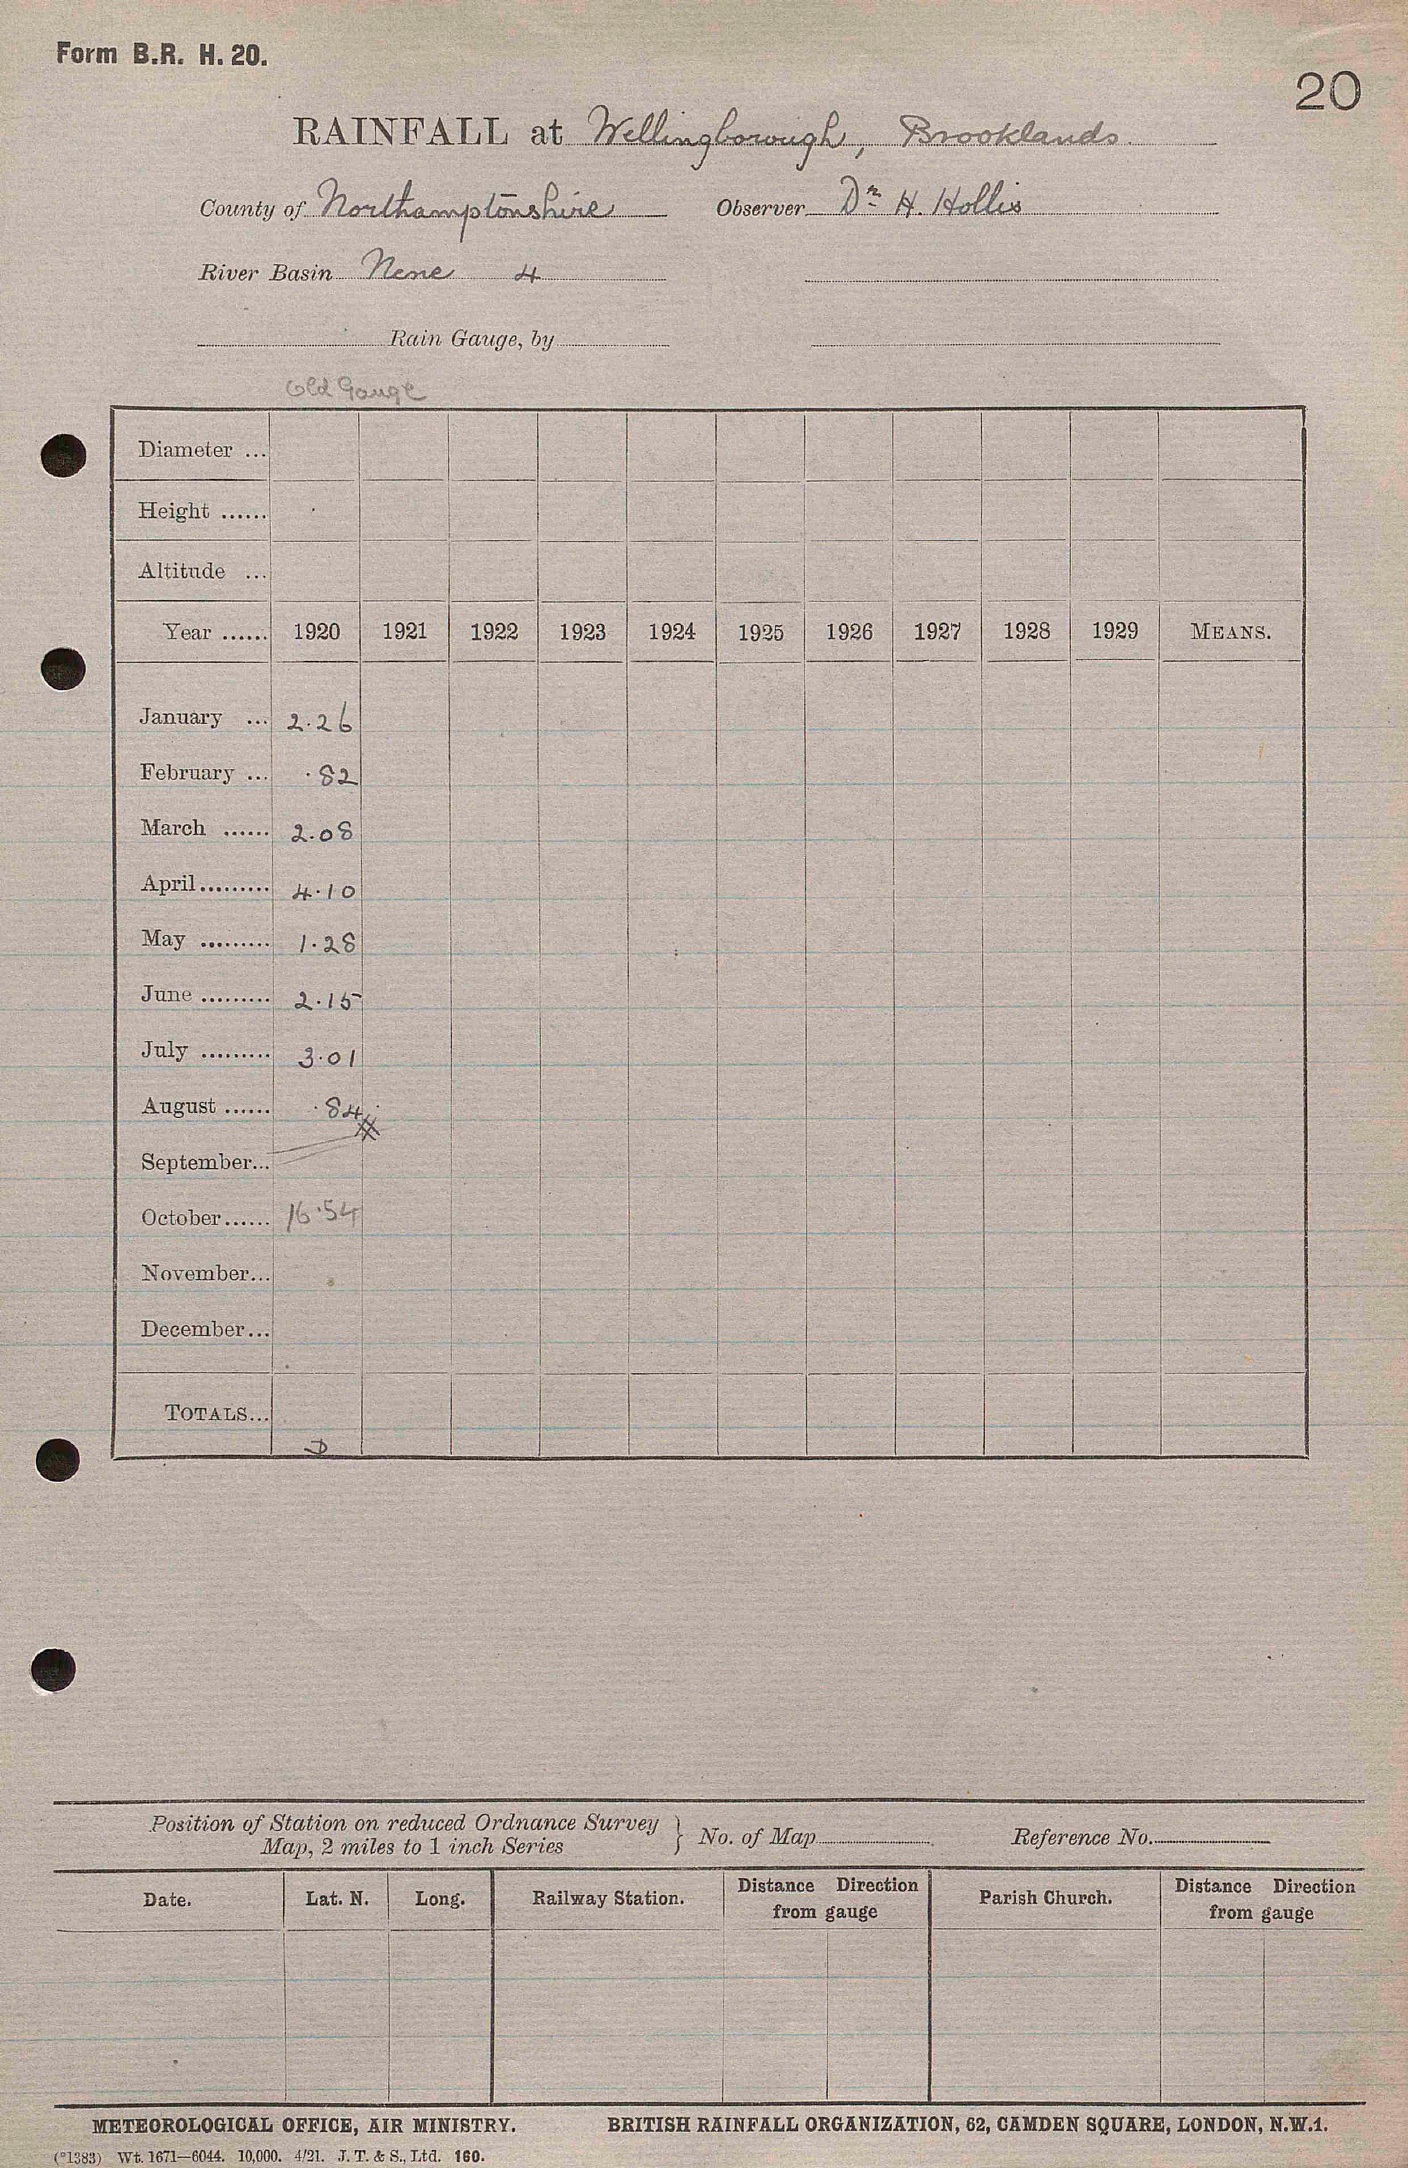 Form B.R. H. 20.
20
RAINFALL at Wellingborough, Brooklands.
County of Northamptonshire Observer Dr H. Hollis
River Basin Nene 4
Rain Gauge, by
Old Gauge
Diameter ...
Height ......
Altitude ...
Year ...... 1920 1921 1922 1923 1924 1925 1926 1927 1928 1929 MEANS.
January ... 2.26
February ... .82
March ...... 2.08
April......... 4.10
May ......... 1.28
June ......... 2.15
July ......... 3.01
August ...... .84
September...
October...... 16.54
November...
December...
TOTALS...
D
Position of Station on reduced Ordnance Survey
Map, 2 miles to 1 inch Series } No. of Map Reference No.
Date. Lat. N. Long. Railway Station. Distance Direction from gauge Parish Church. Distance Direction from gauge
METEOROLOGICAL OFFICE, AIR MINISTRY. BRITISH RAINFALL ORGANIZATION, 62, CAMDEN SQUARE, LONDON, N.W.1.
(*1383) Wt. 1671—6044. 10,000. 4/21. J. T. & S., Ltd. 160.